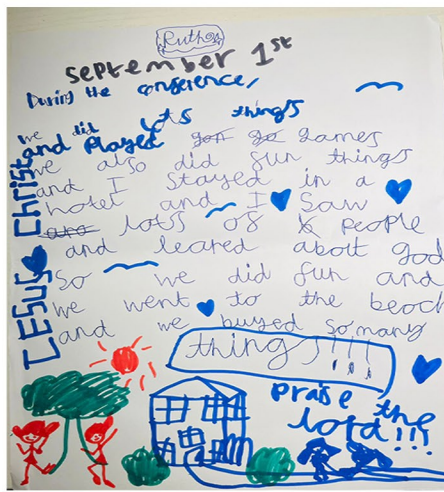 Ruth
September 1st
During the conference,
we did lots things
and played games
we also did fun things
and I stayed in a
hotel and I saw
lots of people
and leared abolt god
So we did fun and
we went to the beach
and we buyed so many
things!!!
praise the
lord!!!
JESUS Christ